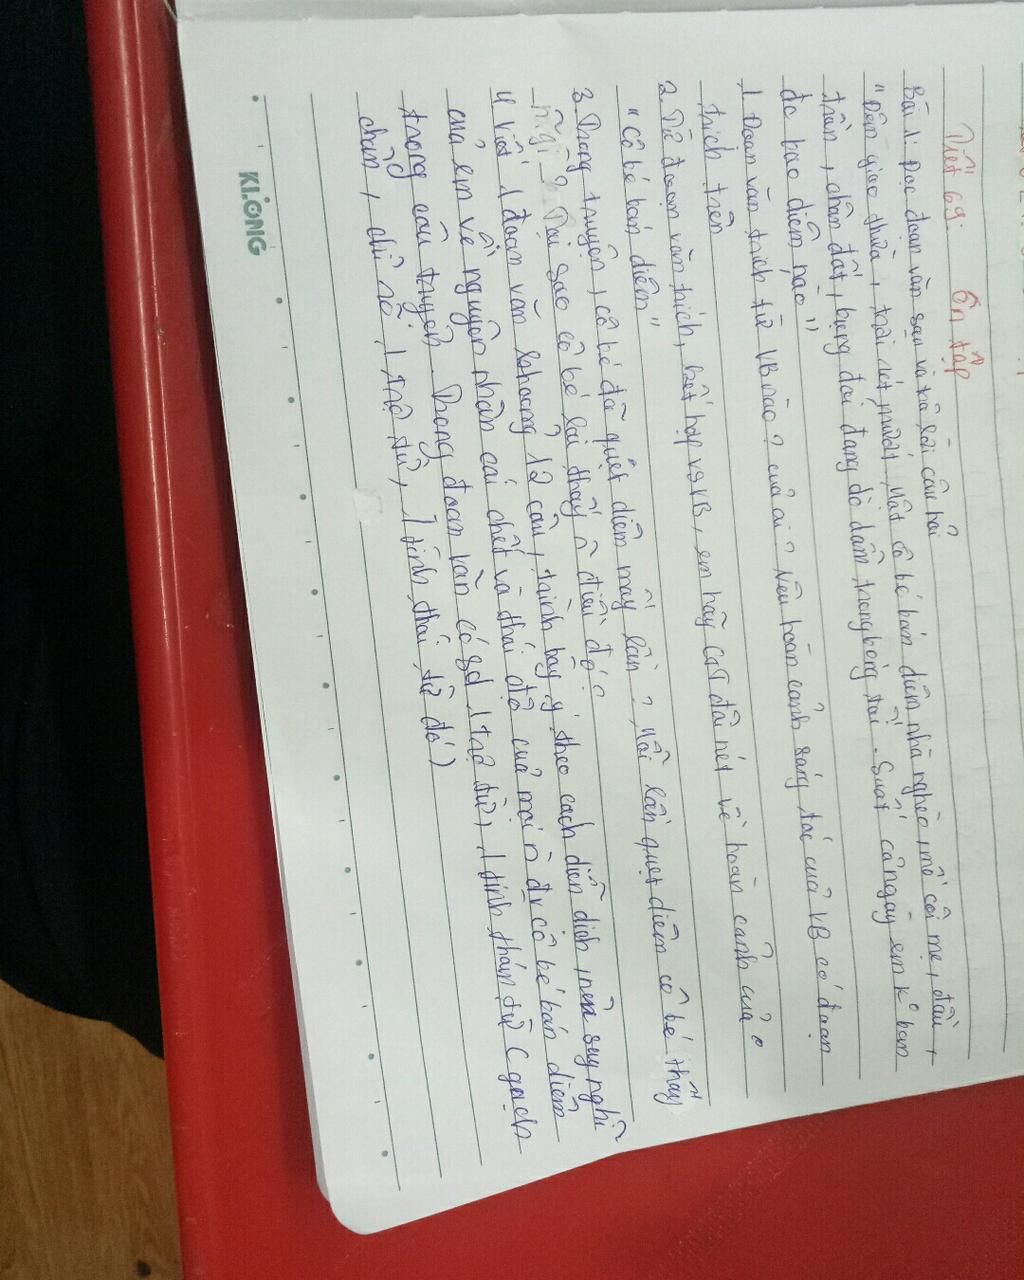 Tiết 69: Ôn tập
Bài 1: Đọc đoạn văn sau và trả lời câu hỏi
"Đêm giao thừa, trời rét mướt. Một cô bé bán diêm nhà nghèo, mồ côi mẹ, đầu
trần, chân đất, bụng đói đang dò dẫm trong bóng tối. Suốt cả ngày em k° bán
đc bao diêm nào"
1. Đoạn văn trích từ VB nào? của ai? Nêu hoàn cảnh sáng tác của VB có đoạn
trích trên
2. Từ đoạn văn trích, kết hợp vs VB, em hãy đôi nét về hoàn cảnh của
"Cô bé bán diêm"
3. Trong truyện, cô bé đã quẹt diêm mấy lần? Mỗi lần quẹt diêm cô bé thấy
n~ gì? Tại sao cô bé lại thấy n~ điều đó?
4. Viết 1 đoạn văn khoảng 12 câu, trình bày ý theo cách diễn dịch, nêu suy nghĩ
của em về nguyên nhân cái chết và thái độ của mọi n đv cô bé bán diêm
trong câu truyện. Trong đoạn văn có sd 1 trợ từ, 1 tình thái từ (gạch
chân, chỉ rõ 1 trợ từ, 1 tình thái từ đó)
KLONG